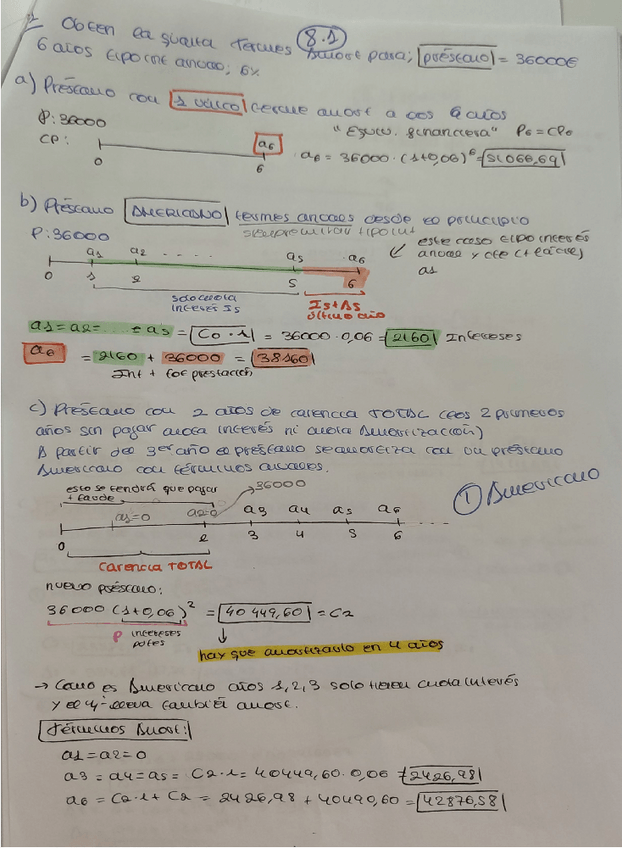 Obten la cuantía términos Amort para; préstamo = 36000€
8.1
6 años tipo int anual; 6%
a) Préstamo con 1 único término amort a los 6 años
P: 36000
"Equiv. financiera" P6 = CP0
CP:
a6
0 6
a6 = 36000 · (1+0,06)^6 = 51066,69
b) Préstamo AMERICANO términos anuales desde el principio
siempre mirar tipo int
P: 36000
este caso tipo interés
anual y cte (+ fácil)
a1
a1 a2 ..... a5 a6
0 1 2 5 6
solo cuota
interés Is
Is+As
último año
a1 = a2 = ..... = a5 = C0 · i = 36000 · 0,06 = 2160 Intereses
a6 = 2160 + 36000 = 38160
Int + prestación
c) Préstamo con 2 años de carencia TOTAL (los 2 primeros
años sin pagar cuota interés ni cuota Amortización)
A partir del 3er año el préstamo se amortiza con un préstamo
Americano con términos anuales.
1 Americano
esto se tendrá que pagar
+ tarde
36000
a1=0 a2=0 a3 a4 a5 a6
0 2 3 4 5 6 ....
Carencia TOTAL
nuevo préstamo:
36000 (1+0,06)^2 = 40449,60 = C2
P intereses
hay que amortizarlo en 4 años
→ Como es Americano años 1,2,3 solo tienen cuota interés
y el 4º lleva también amort.
Términos Amort:
a1 = a2 = 0
a3 = a4 = a5 = C2 · i = 40449,60 · 0,06 = 2426,98
a6 = C2 · i + C2 = 2426,98 + 40490,60 = 42876,58